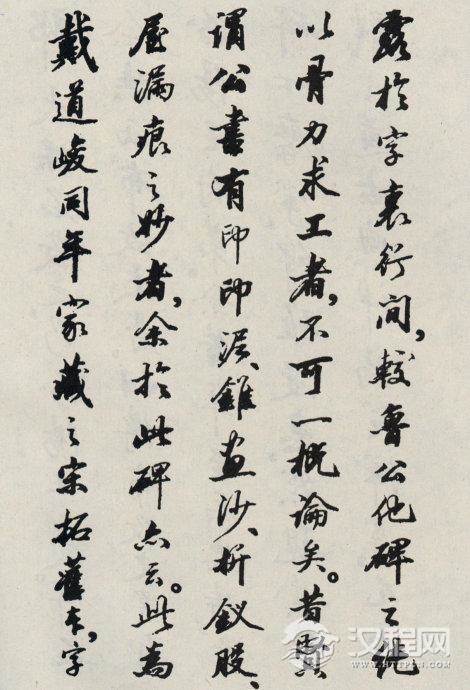 露於字裏行間，較魯公他碑之純
以骨力求工者，不可一概論矣。昔賢
謂公書有印印泥、錐畫沙、折釵股、
屋漏痕之妙者，余於此碑亦云。此為
戴道峻同年家藏之宋拓舊本，字
汉程网
HTTPCN.COM